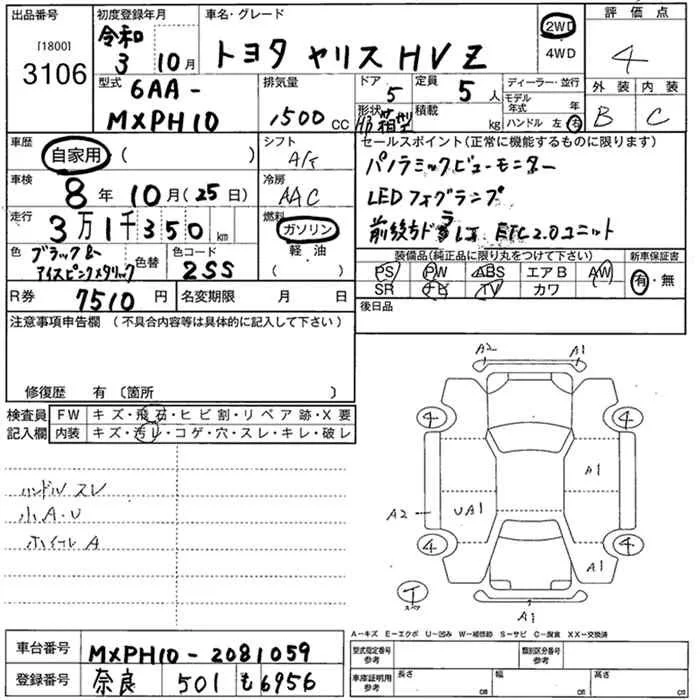 出品番号 初度登録年月 車名・グレード 2WD 評価点
[1800] 3106 令和 3 10月 トヨタ ヤリス HV Z 4WD 4
型式 排気量 ドア 定員 ディーラー・並行 外装 内装
6AA- MXPH10 1500 CC 5 5人 モデル年式 年 B C
形状 HB 積載 kg ハンドル 左 右
車歴 自家用 ( ) シフト A/T セールスポイント(正常に機能するものに限ります)
車検 8年 10月(25日) 冷房 AAC パノラミックビューモニター
LEDフォグランプ
走行 3万1千350km 燃料 ガソリン 前後ちドラレコ ETC2.0ユニット
軽油
( )
色 ブラック& アイスピンクメタリック 色替 色コード 2SS 装備品(純正品に限り丸をつけて下さい) 新車保証書
PS PW ABS エアB AW 有・無
SR ナビ TV カワ
R券 7510円 名変期限 月 日 後日品
注意事項申告欄(不具合内容等は具体的に記入して下さい)
修復歴 有 〔箇所 〕
検査員 FW キズ・飛石・ヒビ割・リペア跡・X要
記入欄 内装 キズ・汚レ・コゲ・穴・スレ・キレ・破レ
ハンドル スレ
小A・U
ホイール A
A2 A1
4 4
A1
A2 UA1
4 4
A1
T
スペア
A1
A-キズ E-エクボ U-凹み W-補修跡 S-サビ C-腐食 XX-交換済
車台番号 MXPH10-2081059 型式指定番号 参考 類別区分番号 参考
登録番号 奈良 501 も 6956 車庫証明用 参考 長さ cm 幅 cm 高さ cm